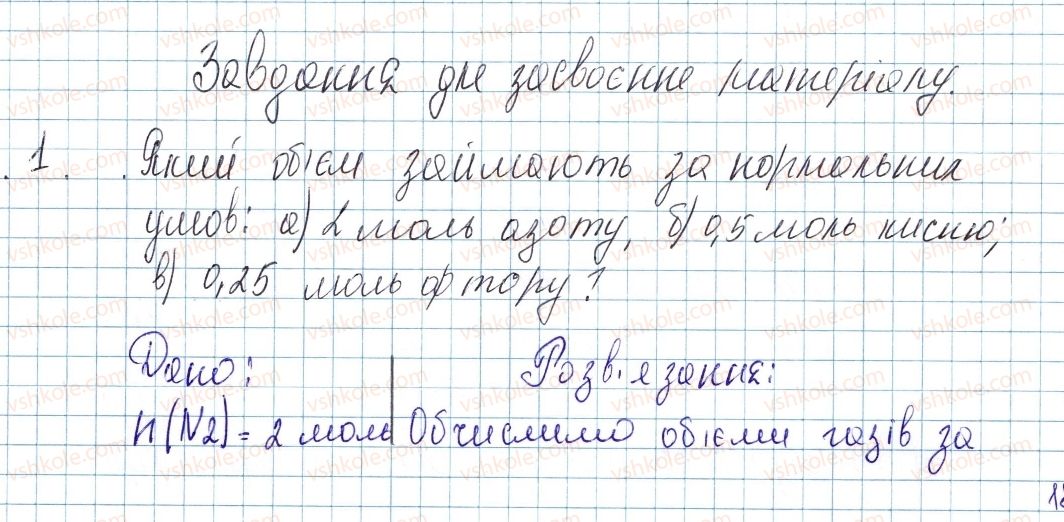 Завдання для засвоєння матеріалу.
1. Який об'єм займають за нормальних
умов: а) 2 моль азоту, б) 0,5 моль кисню;
в) 0,25 моль фтору?
Дано: Розв'язання:
n(N2)=2 моль Обчислимо об'єми газів за
vshkole.com